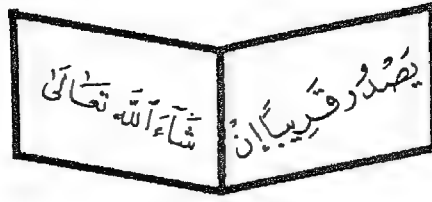 يَصْدُر قَرِيباً إِنْ
شَآءَ ٱللَّه تَعَالَىٰ